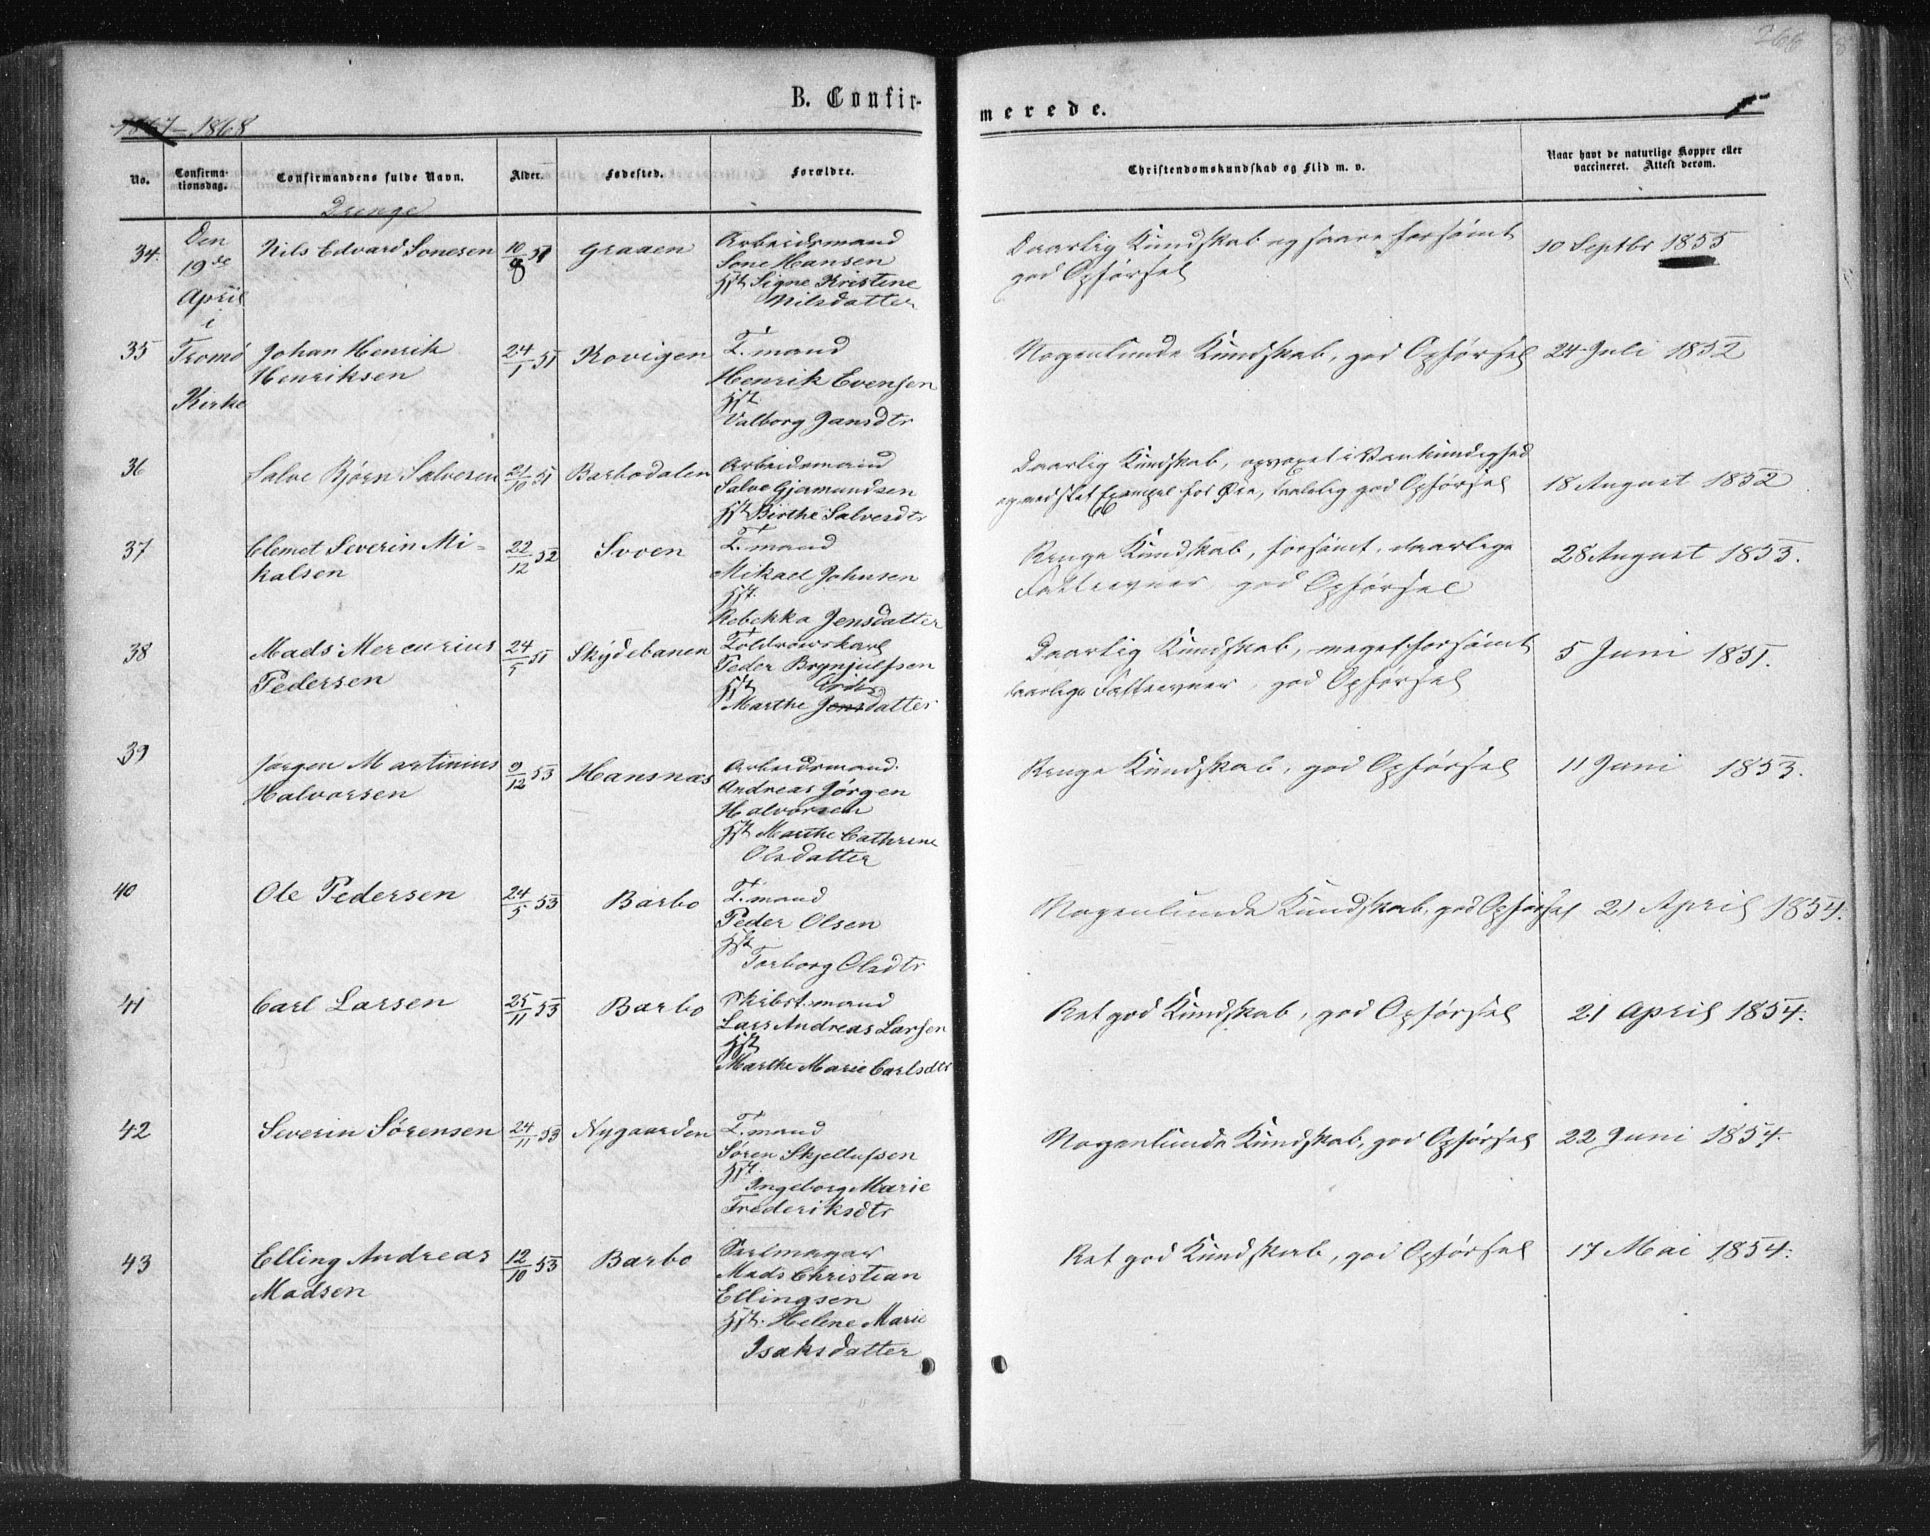 268
B. Confir-
merede.
1867-1868
No.
Confirma-
tionsdag.
Confirmandens fulde Navn.
Alder.
Fødested.
Forældre.
Christendomskundskab og Flid m. v.
Naar havt de naturlige Kopper eller
vaccineret. Attest derom.
Drenge
34.
Den
19de
April
i
Tromø
Kirke
Nils Edvard Sonesen
10/8 51
Graaen
Arbeidsmand
Sone Hansen
Hst Signe Kristine
Nilsdatter
Daarlig Kundskab og saare forsömt
god Opførsel
10 Septbr 1855
35
Johan Henrik
Henriksen
24/1 51
Kovigen
T. mand
Henrik Evensen
Hst.
Valborg Jansdtr
Nogenlunde Kundskab, god Opførsel
24 Juli 1852
36
Salve Bjørn Salvesen
21/10 51
Barbodalen
Arbeidsmand
Salve Gjermundsen
Hst Birthe Salvesdtr
Daarlig Kundskab, opvoxet i Vankundighed
og med slet Exempel for Øie, taalelig god Opførsel
18 August 1852
37
Clemet Severin Mi-
kalsen
22/12 52
Svoen
T. mand
Mikael Johnsen
Hst.
Rebekka Jensdatter
Ringe Kundskab, forsömt, daarlige
Fatteevner, god Opførsel
28 August 1853.
38
Mads Mercurius
Pedersen
24/5 51
Skÿdebanen
Toldrorskarl
Peder Brynjulfsen
Hst
Marthe Jensdatter
Daarlig Kundskab, meget forsömt
daarlige Fatteevner, god Opførsel
5 Juni 1851.
39
Jørgen Martinius
Halvorsen
9/12 53
Hansnæs
Arbeidsmand.
Andreas Jørgen
Halvorsen
Hst Marthe Cathrine
Olsdatter
Ringe Kundskab, god Opførsel
11 Juni 1853.
40
Ole Pedersen
24/5 53
Barbo
T. mand
Peder Olsen
Hst
Torborg Olsdtr
Nogenlunde Kundskab, god Opførsel
21 April 1854.
41
Carl Larsen
25/11 53
Barbo
Skibst. mand
Lars Andreas Larsen
Hst
Marthe Marie Carlsdtr
Ret god Kundskab, god Opførsel
21 April 1854.
42
Severin Sørensen
24/11 53
Nygaarden
T. mand
Søren Skjellufsen
Hst.
Ingeborg Marie
Frederiksdtr
Nogenlunde Kundskab, god Opførsel
22 Juni 1854.
43
Elling Andreas
Madsen
12/10 53
Barbo
Seilmager
Mads Christian
Ellingsen
Hst. Helene Marie
Isaksdatter
Ret god Kundskab, god Opførsel
17 Mai 1854.